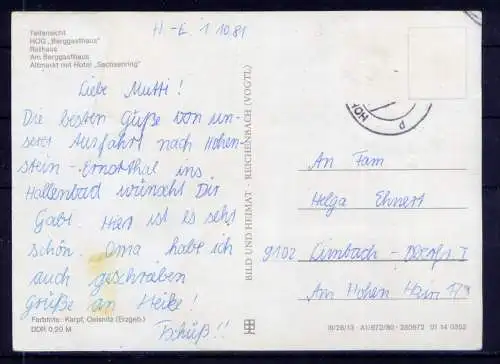 Teilansicht
HOG „Berggasthaus"
Rathaus
Am Berggasthaus
Altmarkt mit Hotel „Sachsenring"
H-E. 1 10.81
Liebe Mutti!
Die besten Güße von un-
serer Ausfahrt nach Hohen-
stein-Ernstthal ins
Hallenbad wünscht Dir
Gabi. Hier ist es sehr
schön. Oma habe ich
auch geschrieben
Grüße an Heike!
Tschüß!!
Farbfoto: Karpf, Oelsnitz (Erzgeb.)
DDR 0,20 M
BILD UND HEIMAT · REICHENBACH (VOGTL)
HOH
An Fam
Helga Ehnert
9102 Limbach - Oberfr. I
Am Hohen Hain
III/26/13 · A1/672/80 · 01 14 0352